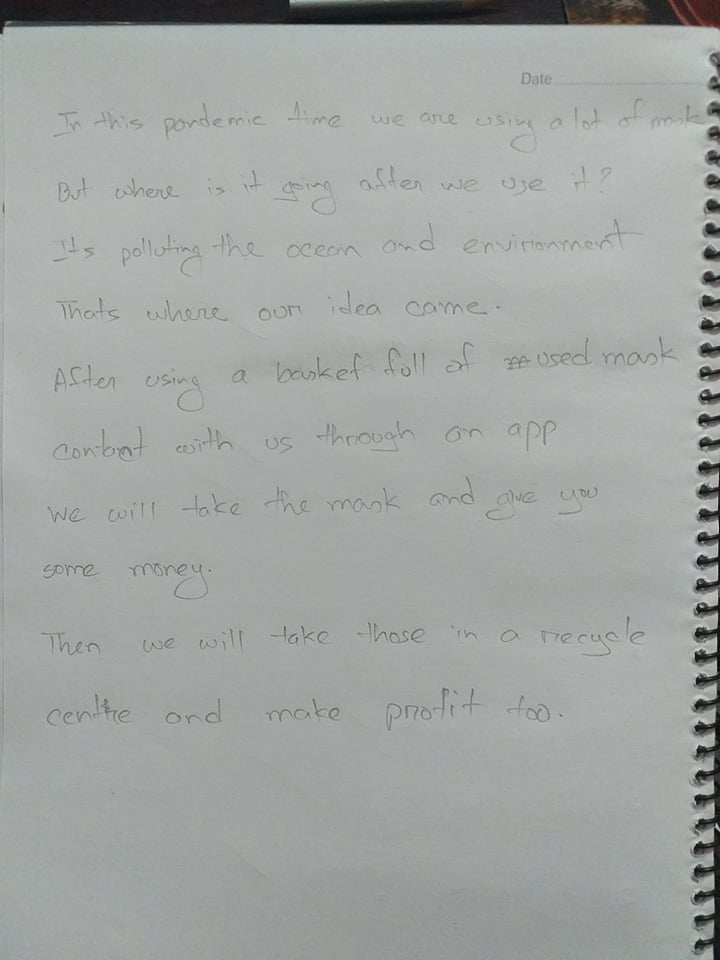 Date
In this pandemic time we are using a lot of mask
But where is it going after we use it?
Its polluting the ocean and environment
Thats where our idea came.
After using a basket full of used mask
contact with us through an app
We will take the mask and give you
some money.
Then we will take those in a recycle
centre and make profit too.